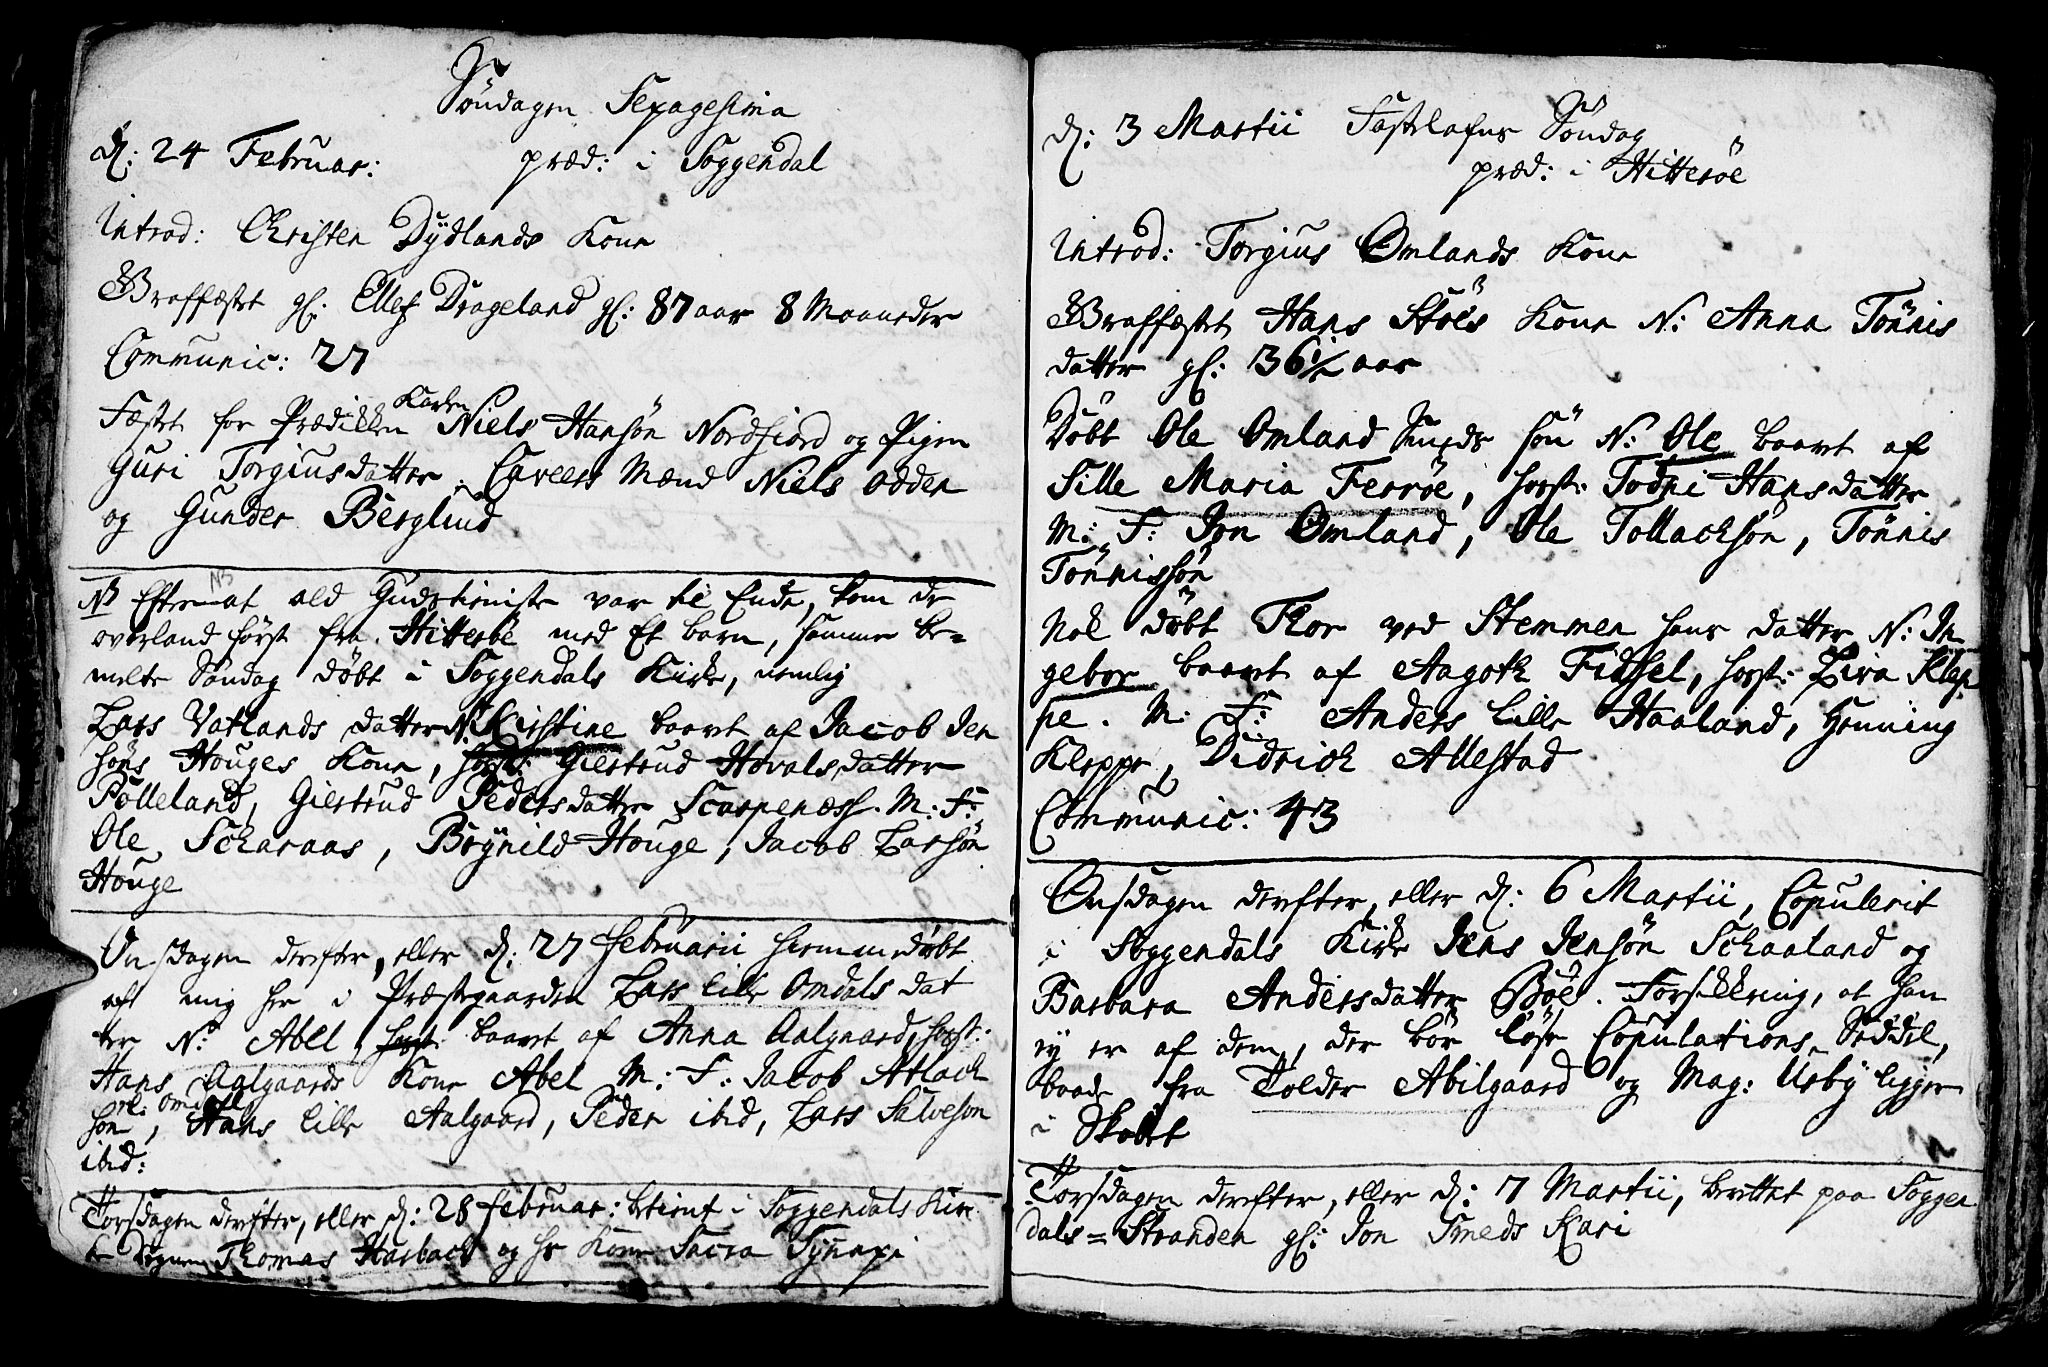 Søndagen Sexagesima
d: 24 Februar: præd: i Soggendal
Introd: Christen Dydlands Kone
Graffæstet gl: Ellef Drageland gl: 87 aar 8 Maaneder
Communic: 27
Fæstet for Prædicken Karlen Niels Hansøn Nordfiord og Pigen
Guri Torgiusdatter. Caveers Mænd Niels Odden
og Gunder Berglund
NB Efter at ald Gudstieniste var til Ende, kom de
overland først fra Hitterøe med Et barn, samme be=
melte Søndag døbt i Soggendals Kirke, nemlig
Lars Vatlands datter N: Kirstine baaret af Jacob Jen
søns Houges Kone, Giertrud Hovalsdatter
Pølleland, Giertrud Pedersdatter Scarpenæss. M: F:
Ole Scharaas, Brynild Houge, Jacob Larsøn
Houge
Onsdagen derefter, eller d: 27 Februarii hiemmedøbt
aff mig her i Præstegaarden Lars lille Omdals dat
ter N: Abel baaret af Anna Aalgaard, forst:
Hans Aalgaards Kone Abel M: F: Jacob Atlack
søn Omdal, Hans lille Aalgaard, Peder ibid, Lars Salveson
ibid:
Torsdagen derefter, eller d: 28 Februar: betient i Soggendals Kir
ke Thomas Harbach og hs Kone Sacra Synaxi
d: 3 Martii Fastelafns Søndag
præd: i Hitterøe
Introd: Torgius Omlands Kone
Graffæstet Hans Støls Kone N: Anna Tønnis
datter gl: 36½ aar
Døbt Ole Omland Smeds søn N: Ole baaret af
Sille Maria Ferrøe, forst: Todni Hansdatter
M: F: Jon Omland, Ole Tollacksøn, Tønnis
Tønnissøn
Nok døbt Thor ved Stemmen hans datter N: In
gebor baaret af Aagoth Fidsel, forst: Lira Klep
pe. M: F: Anders lille Haaland, Henning
Kleppe, Didrich Allestad
Communic: 43
Onsdagen derefter, eller d: 6 Martii, Copulerit
i Soggendals Kirke Jens Jensøn Schaaland og
Barbara Andersdatter Bøe. Forsickring, at han
ey er af dem, der bør løse Copulations Seddel,
baade fra Tolder Abilgaard og Mag: Usby ligger
i Skabet
Torsdagen derefter, eller d: 7 Martii, berettet paa Soggen
dals = Stranden gl: Jon Smeds Kari